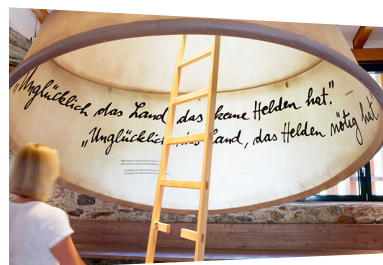 „Unglücklich das Land, das keine Helden hat." –
„Unglücklich das Land, das Helden nötig hat